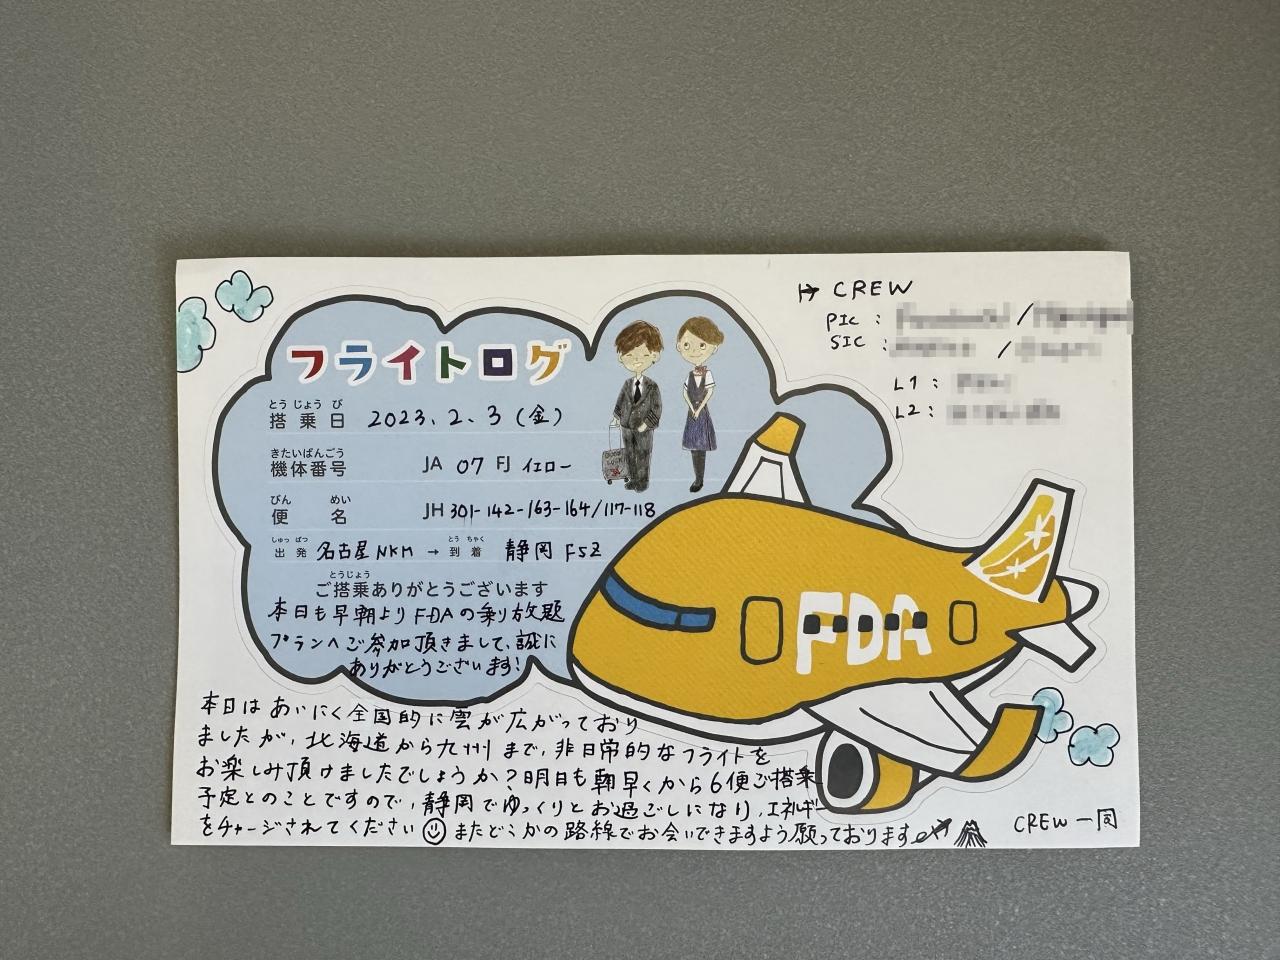 フライトログ
とうじょうび
搭乗日 2023.2.3(金)
きたいばんごう
機体番号 JA 07 FJ イエロー
びん めい
便名 JH 301-142-163-164/117-118
しゅっぱつ とうちゃく
出発 名古屋 NKM → 到着 静岡 FSZ
とうじょう
ご搭乗ありがとうございます
本日も早朝よりFDAの乗り放題
プランへご参加頂きまして、誠に
ありがとうございます!
CREW
PIC: /
SIC: /
L1:
L2:
GOOD LUCK
FDA
本日はあいにく全国的に雲が広がっており
ましたが、北海道から九州まで、非日常的なフライトを
お楽しみ頂けましたでしょうか?明日も朝早くから6便ご搭乗
予定とのことですので、静岡でゆっくりとお過ごしになり、エネルギー
をチャージされてください またどこかの路線でお会いできますよう願っております
CREW一同